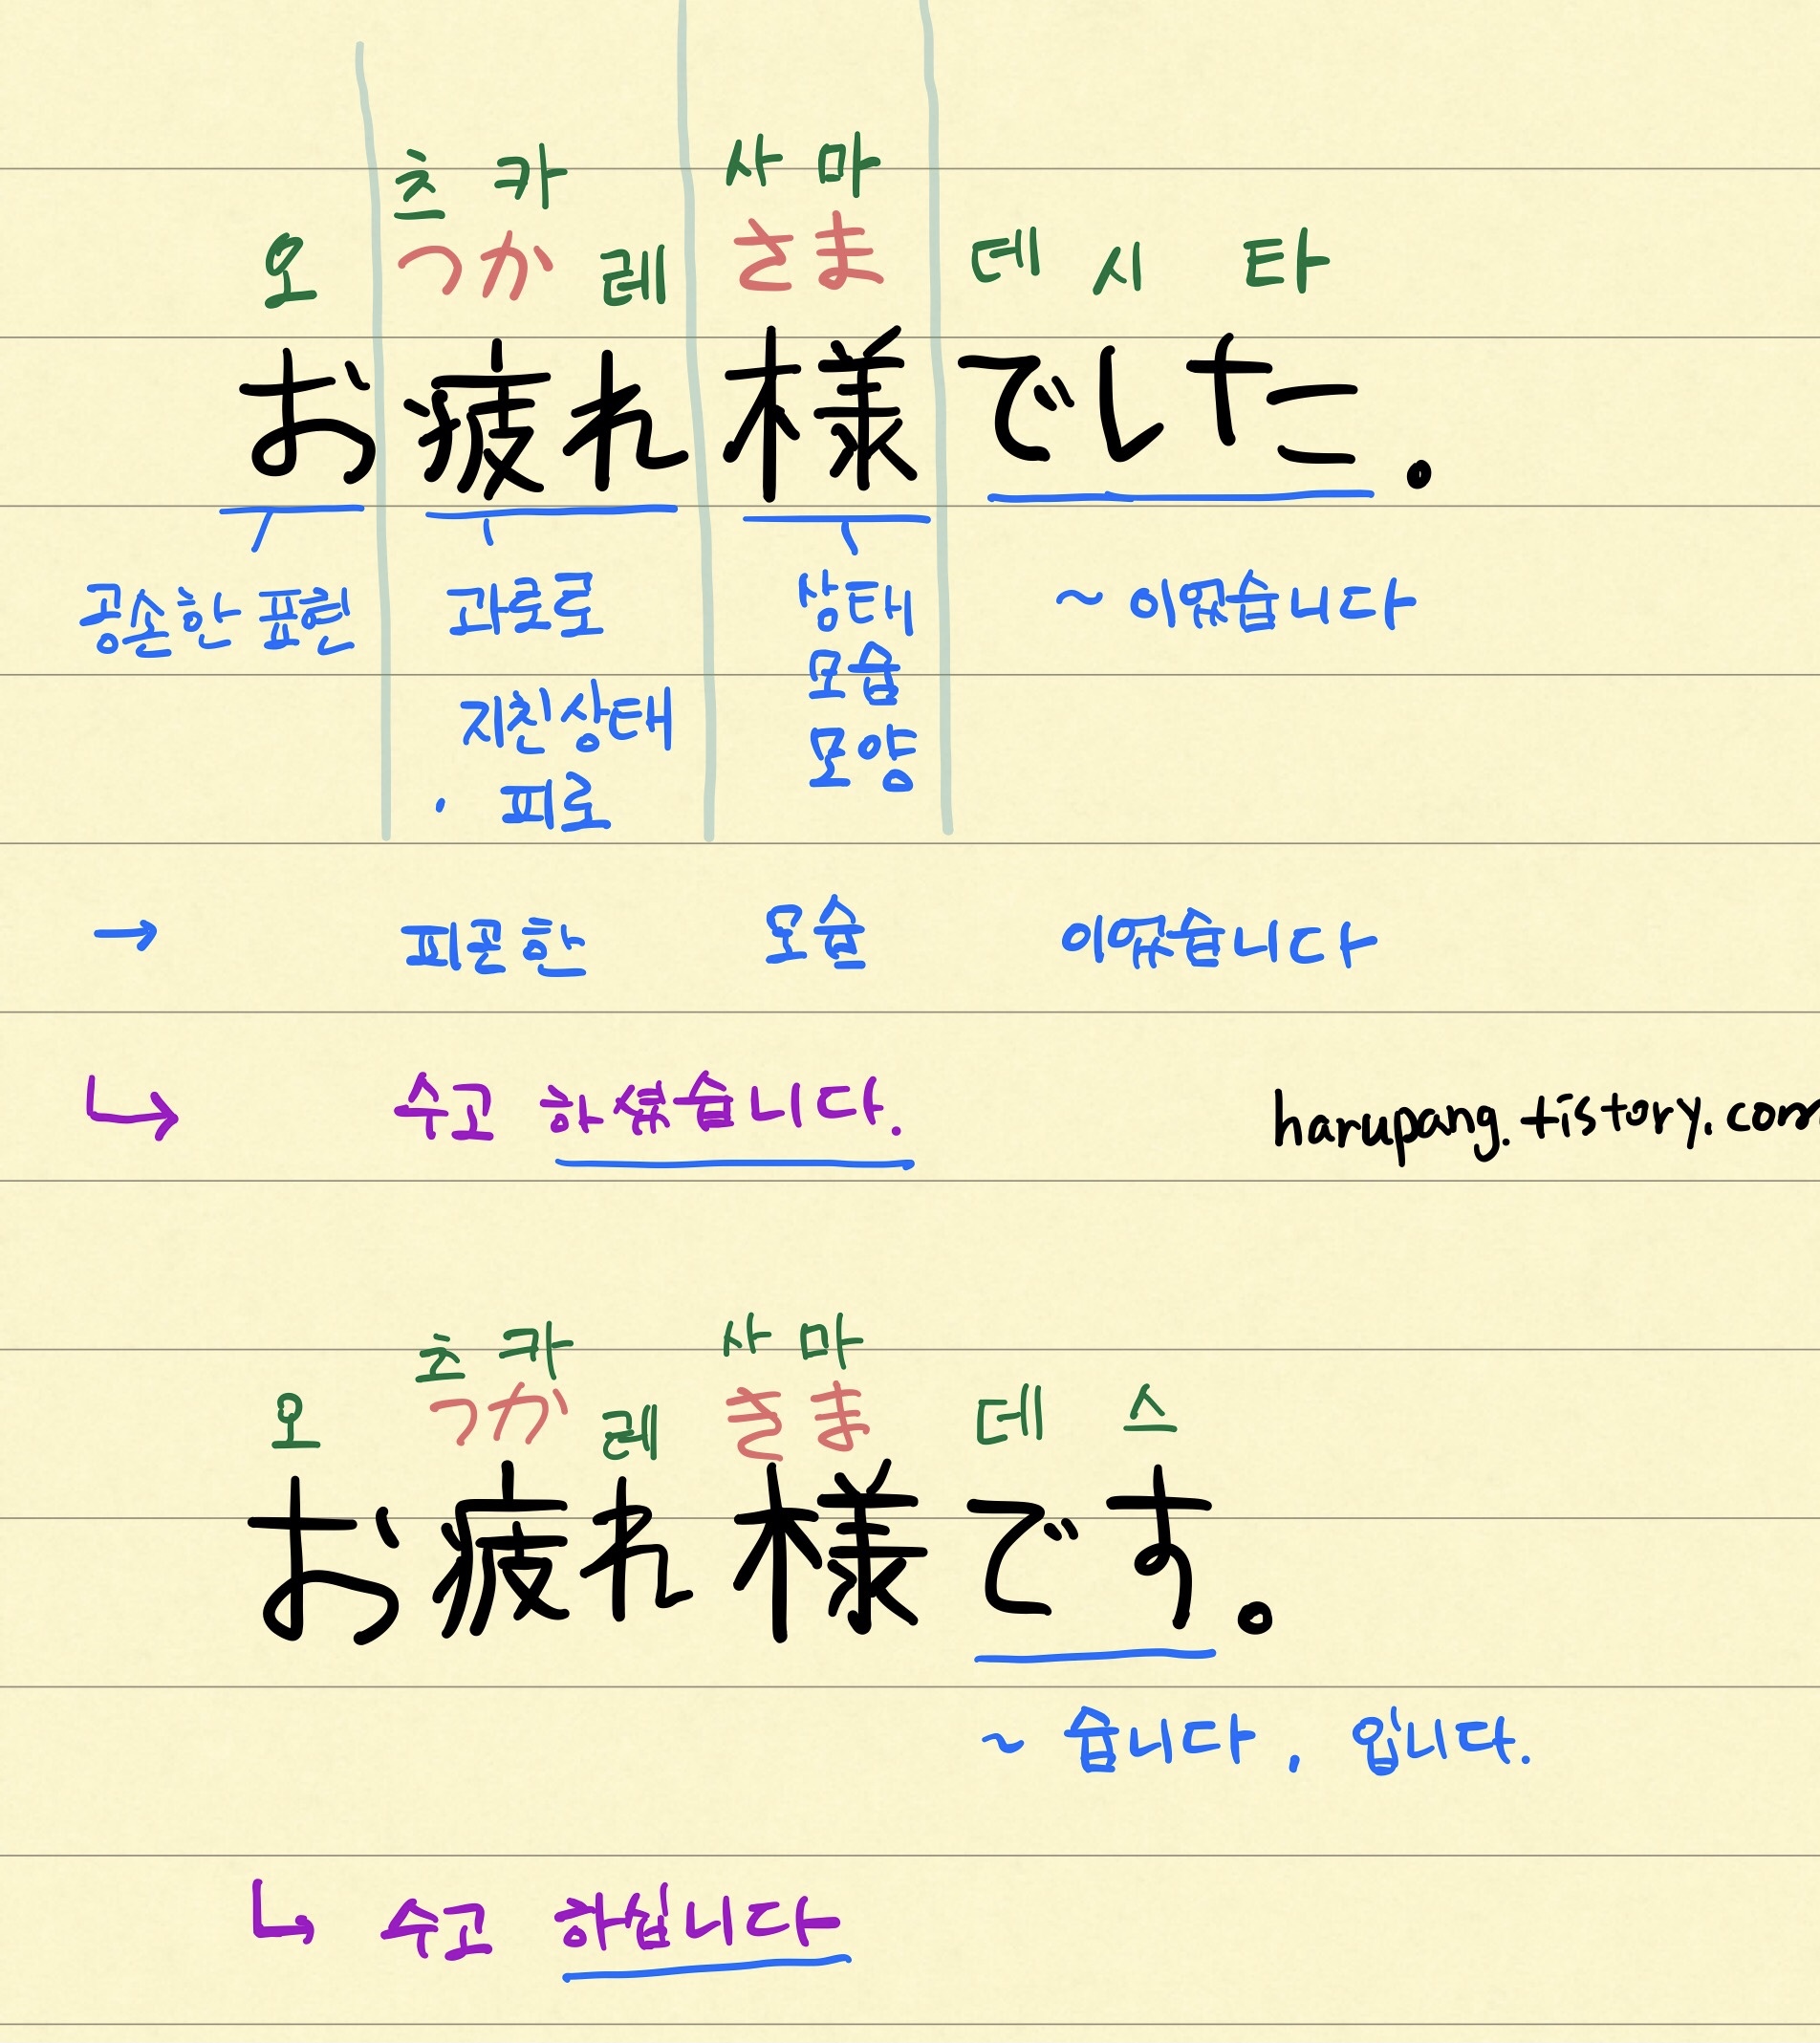 츠카 사마
오 つか 레 さま 데 시 타
お疲れ様でした.
공손한 표현 과로로 상태 ~이었습니다
모습
지친상태 모양
· 피로
→ 피곤한 모습 이었습니다
↳ 수고 하셨습니다. harupang.tistory.com
츠카 사마
오 つか 레 さま 데 스
お疲れ様です。
~습니다, 입니다.
↳ 수고 하십니다